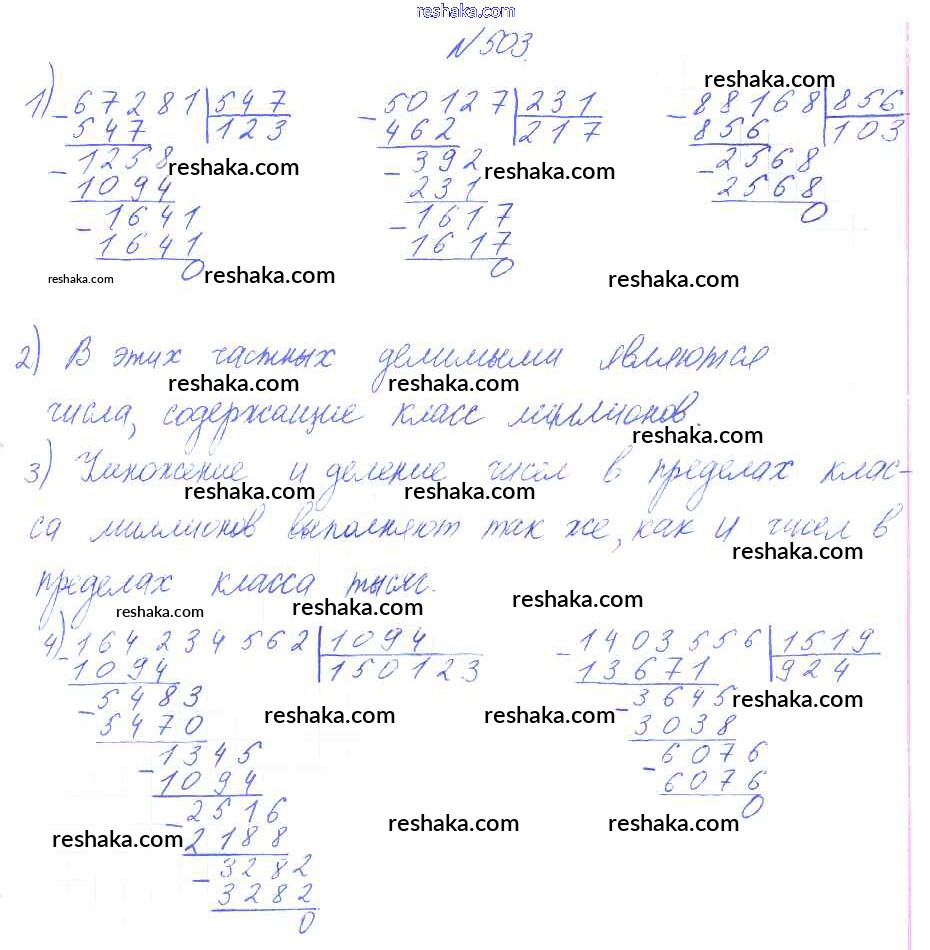 reshaka.com
№503.
reshaka.com
1) 67281 | 547
547 | 123
1258
1094
1641
1641
0
50127 | 231
462 | 217
392
231
1617
1617
0
88168 | 856
856 | 103
2568
2568
0
reshaka.com
reshaka.com
reshaka.com
reshaka.com
reshaka.com
2) В этих частных делимыми являются
reshaka.com reshaka.com
числа, содержащие класс миллионов.
reshaka.com
3) Умножение и деление чисел в пределах клас-
reshaka.com reshaka.com
са миллионов выполняют так же, как и чисел в
reshaka.com
пределах класса тысяч.
reshaka.com reshaka.com reshaka.com
4) 164234562 | 1094
1094 | 150123
5483
5470
1345
1094
2516
2188
3282
3282
0
1403556 | 1519
13671 | 924
3645
3038
6076
6076
0
reshaka.com
reshaka.com reshaka.com
reshaka.com reshaka.com reshaka.com